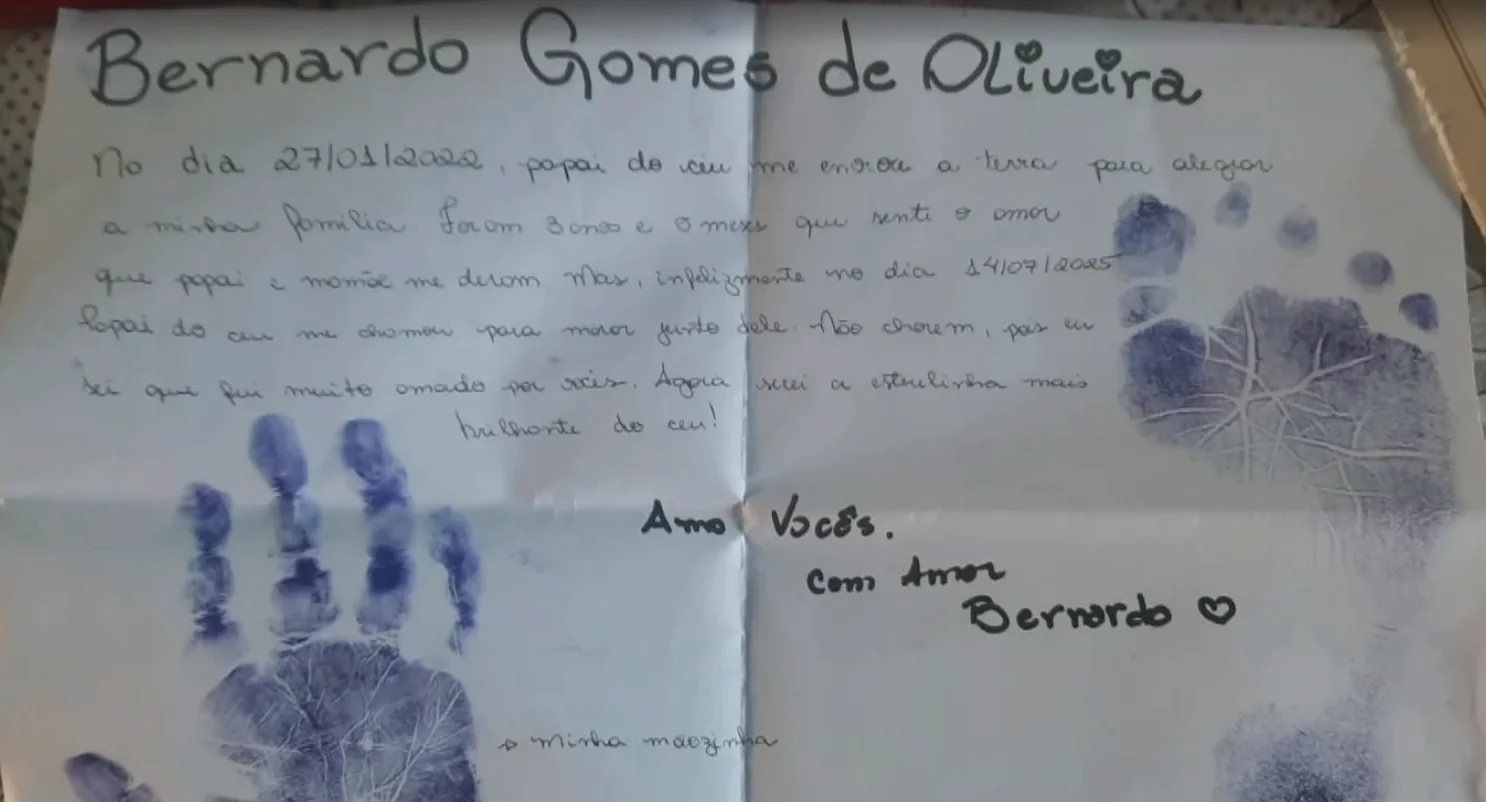 Bernardo Gomes de Oliveira
No dia 27/01/2022, papai do ceu me enviou a terra para alegrar
a minha família. Foram 3 anos e 5 meses que senti o amor
que papai e mamãe me deram. Mas, infelizmente no dia 14/07/2025
Papai do ceu me chamou para morar junto dele. Não chorem, pois eu
sei que fui muito amado por vocês. Agora serei a estrelinha mais
brilhante do ceu!
Amo Vocês.
Com Amor
Bernardo
minha mãozinha